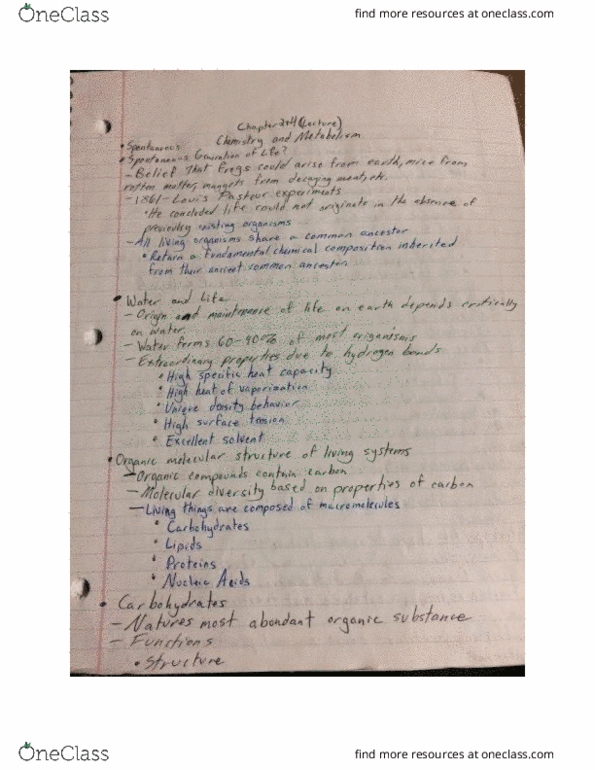 OneClass
find more resources at oneclass.com
Chapter 2+4 (Lecture)
Chemistry and Metabolism
• Spontaneous
• Spontaneous Generation of Life?
- Belief that frogs could arise from earth, mice from
rotten matter, maggots from decaying meat, etc.
- 1861 - Louis Pasteur experiments
• He concluded life could not originate in the absence of
previously existing organisms
- All living organisms share a common ancestor
• Retain a fundamental chemical composition inherited
from their ancient common ancestor
• Water and Life
- Origin and maintenance of life on earth depends critically
on water.
- Water forms 60-90% of most organisms
- Extraordinary properties due to hydrogen bonds
• High specific heat capacity
• High heat of vaporization
• Unique density behavior
• High surface tension
• Excellent solvent
• Organic molecular structure of living systems
- Organic compounds contain carbon
- Molecular diversity based on properties of carbon
- Living things are composed of macromolecules
• Carbohydrates
• Lipids
• Proteins
• Nucleic Acids
• Carbohydrates
- Natures most abundant organic substance
- Functions
• Structure
OneClass
find more resources at oneclass.com